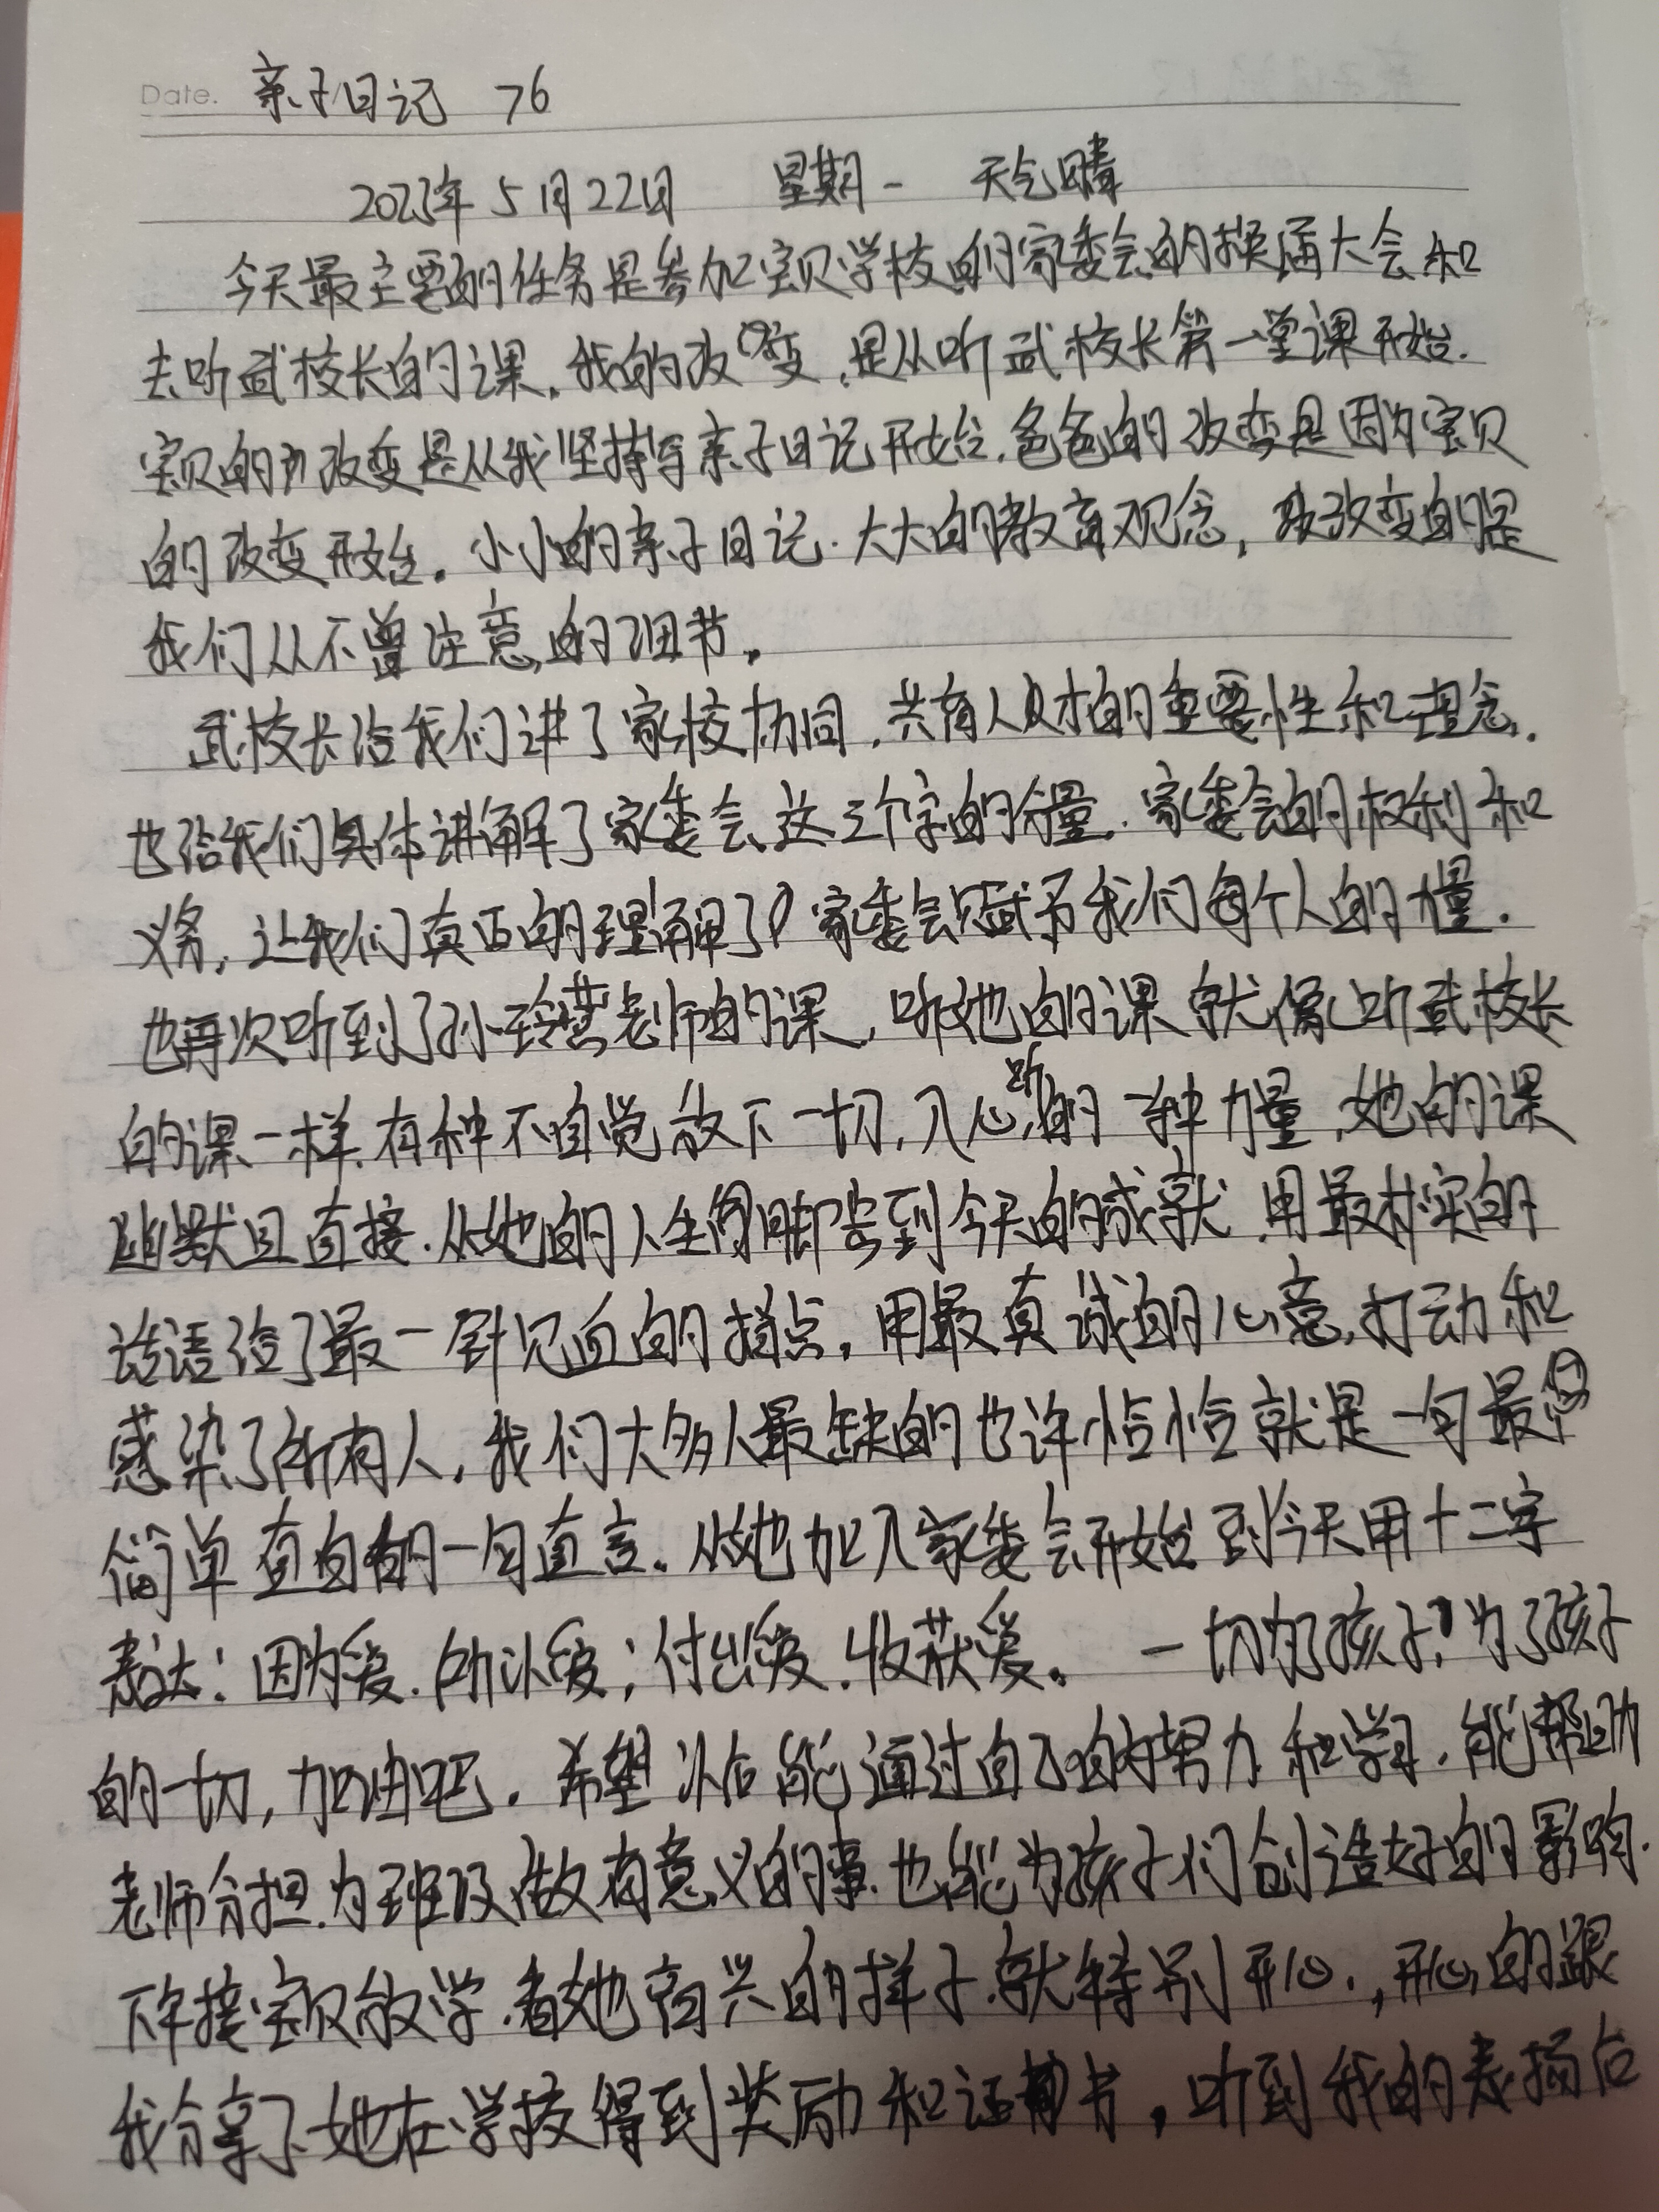 Date. 亲子日记 76
2023年5月22日 星期一 天气晴
今天最主要的任务是参加宝贝学校的家委会的换届大会和
去听武校长的课。我的改变,是从听武校长第一堂课开始.
宝贝的改变是从我坚持写亲子日记开始.爸爸的改变是因为宝贝
的改变开始。小小的亲子日记.大大的教育观念,改变的是
我们从不曾注意的细节。
武校长给我们讲了家校协同,共育人才的重要性和理念.
也给我们具体讲解了家委会这三个字的分量.家委会的权利和
义务,让我们真正的理解了家委会赋予我们每个人的力量.
也再次听到了孙玲燕老师的课,听她的课就像听武校长
的课一样.有种不自觉放下一切,入心听的一种力量,她的课
幽默且直接.从她的人生到今天的成就.用最朴实的
话语给了最一针见血的指点.用最真诚的心意,打动和
感染了所有人,我们大多人最缺的也许恰恰就是一句最
简单直白的一句直言.从她加入家委会开始到今天用十二字
表达:因为爱.所以爱;付出爱.收获爱。一切为了孩子,为了孩子
的一切,加油吧.希望以后能通过自己的努力和学习.能帮助
老师分担.为班级做有意义的事.也能为孩子们创造好的影响.
下午接宝贝放学.看她高兴的样子.就特别开心.,开心的跟
我分享了她在学校得到奖励和证书,听到我的表扬后